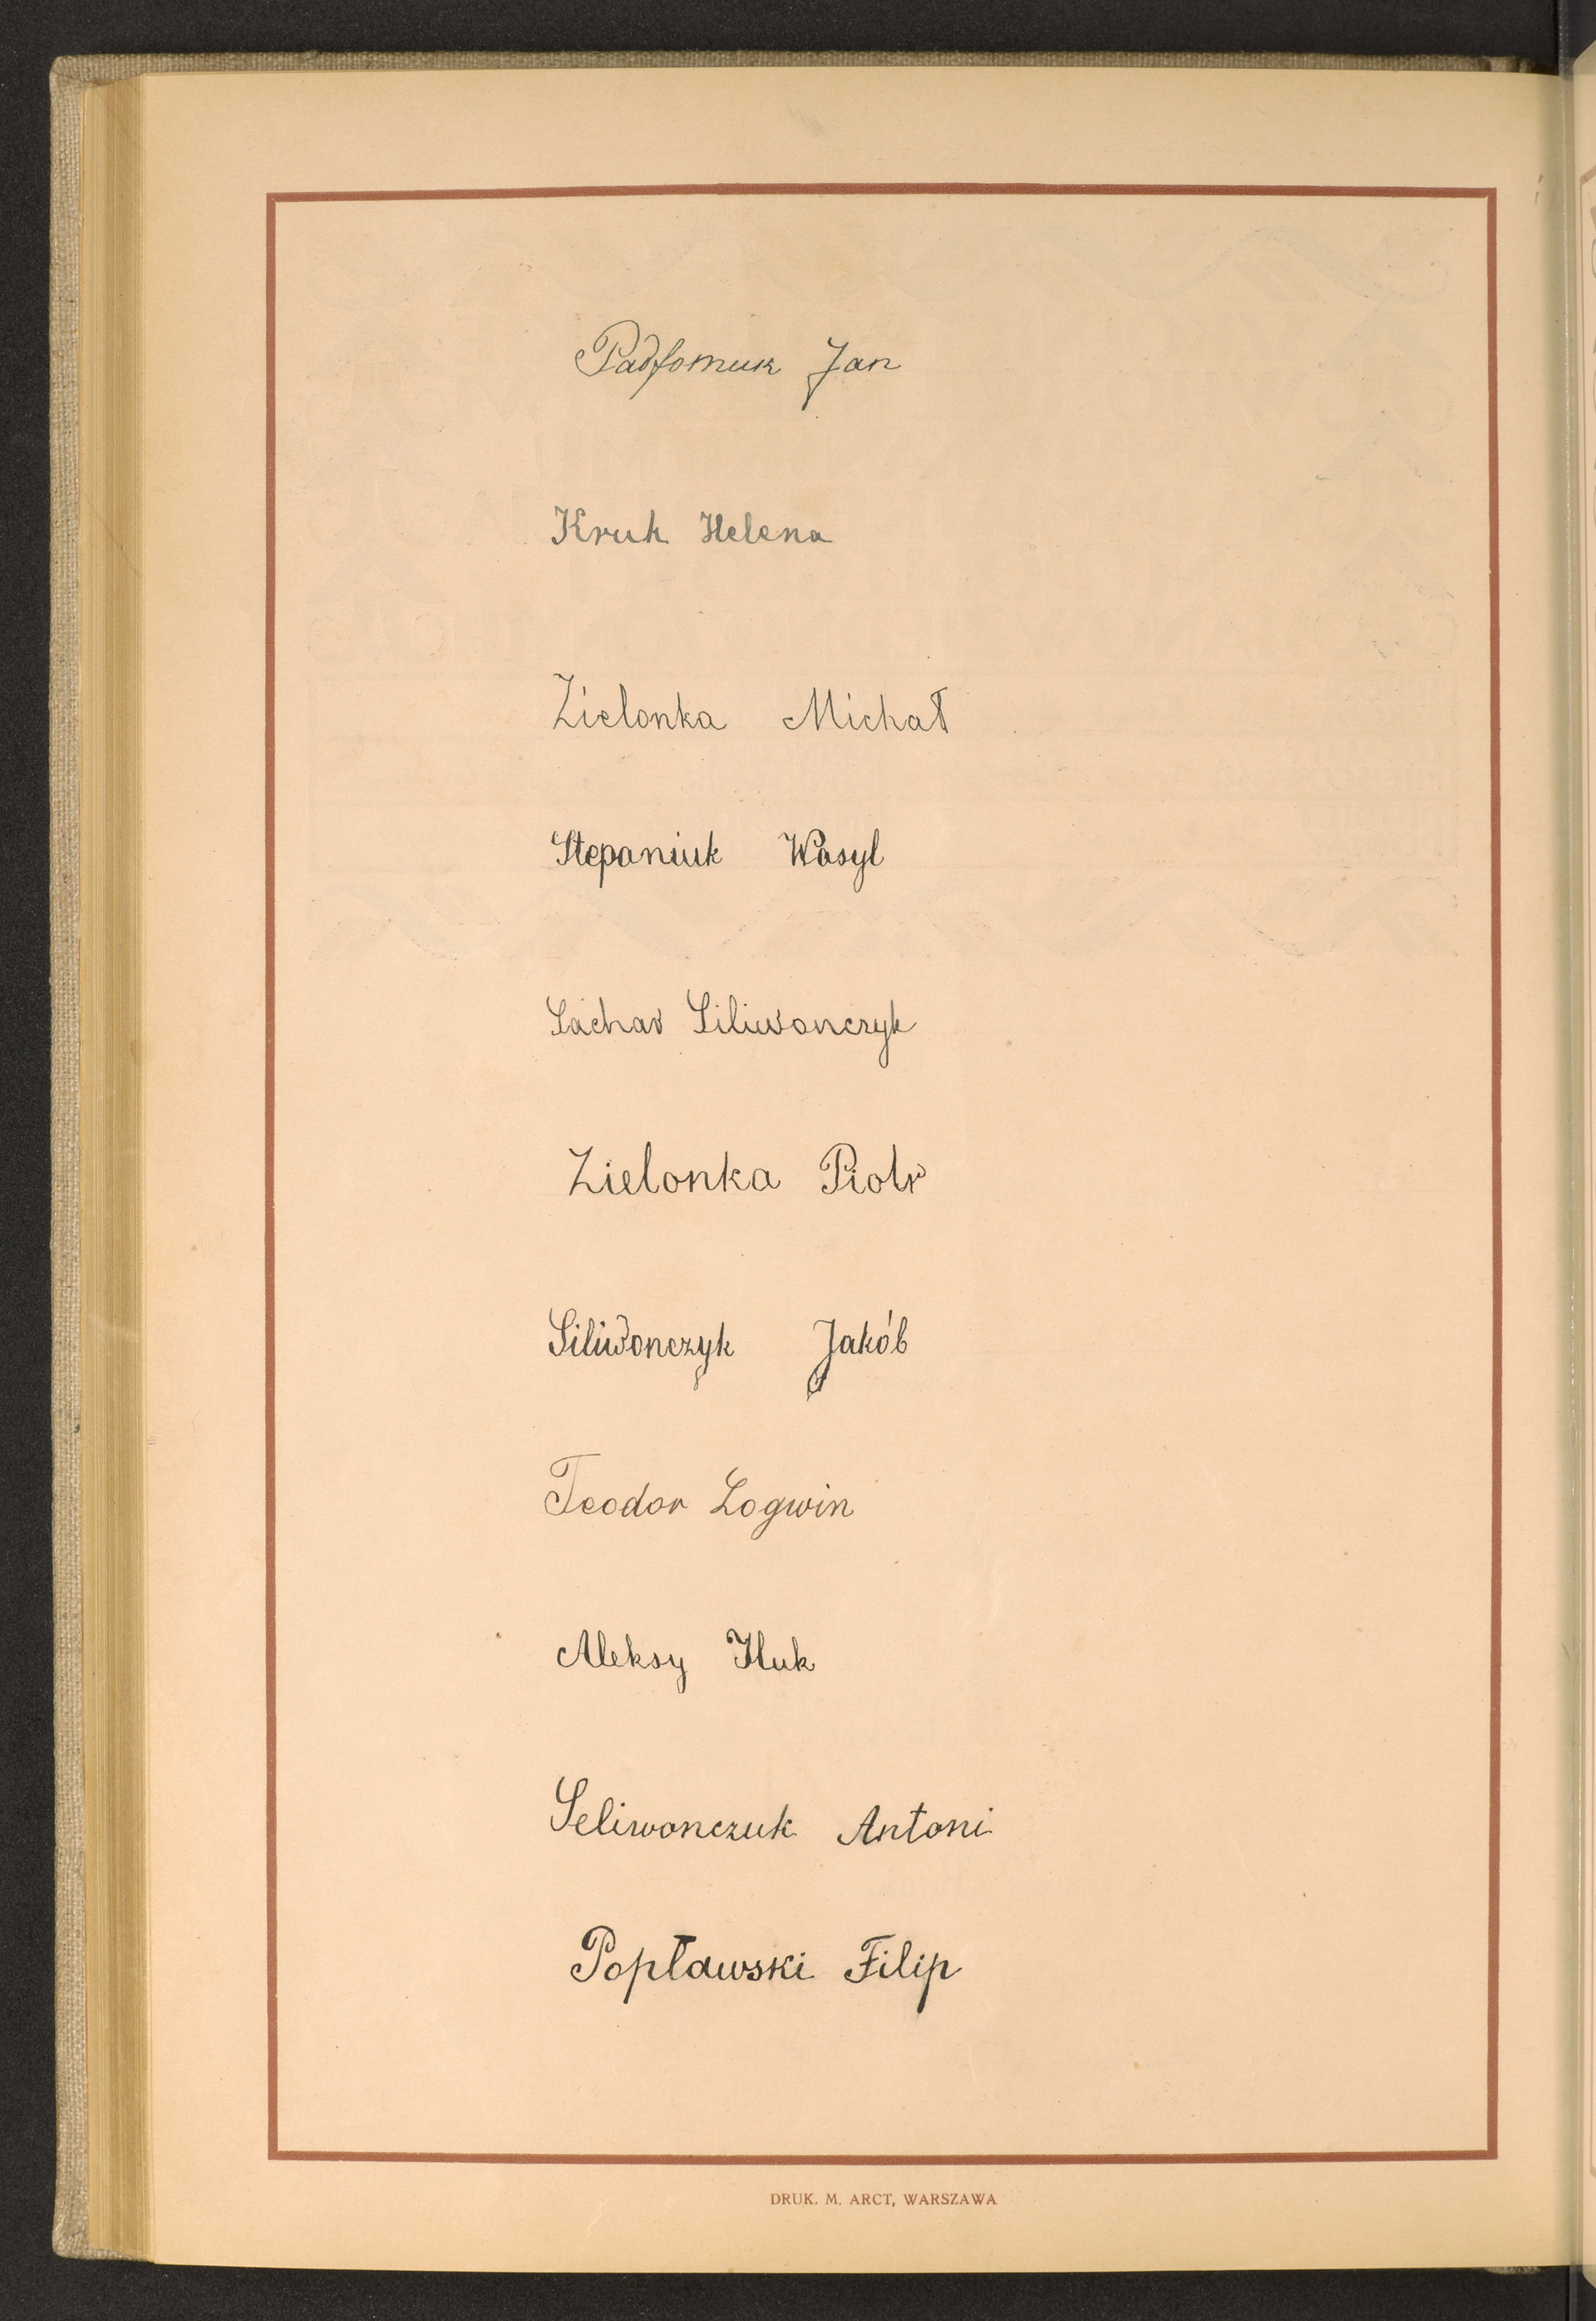 Jan
Kruk Helena
Zielonka Michał
Stepaniuk Wasyl
Sachar Siliwonczyk
Zielonka Piotr
Siliwonczyk Jakób
Teodor Logwin
Aleksy Iluk
Seliwonczuk Antoni
Popławski Filip
DRUK. M. ARCT, WARSZAWA